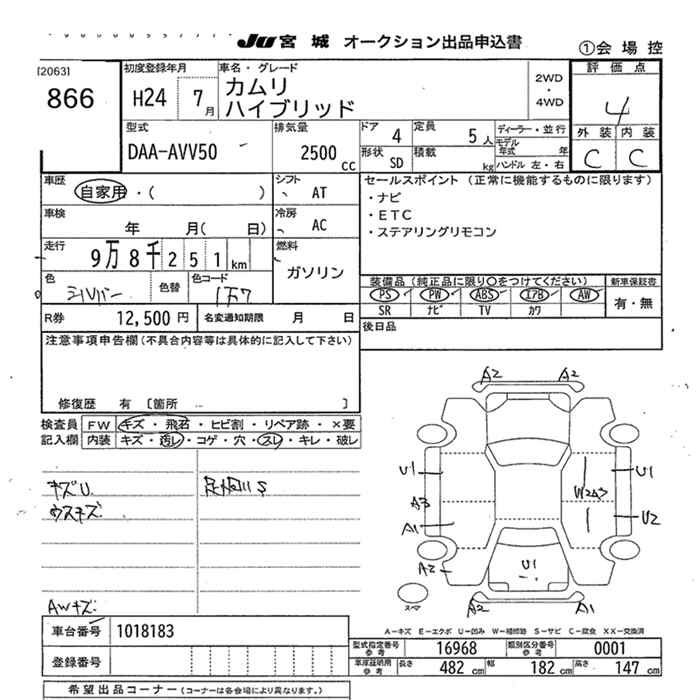 JU 宮城 オークション出品申込書
①会場控
[2063]
866
初度登録年月
H24 7月
車名・グレード
カムリ
ハイブリッド
2WD
・
4WD
評価点
4
外装 内装
C C
型式
DAA-AVV50
排気量
2500 CC
ドア 4
定員 5人
形状 SD
積載 kg
ディーラー・並行
モデル年式 年
ハンドル 左・右
車歴
自家用・( )
シフト AT
車検
年 月( 日)
冷房 AC
走行
9万8千251km
燃料
ガソリン
色
シルバー
色替
色コード
1F7
セールスポイント (正常に機能するものに限ります)
・ナビ
・ETC
・ステアリングリモコン
装備品 (純正品に限り○をつけてください)
PS PW ABS エアB AW
SR ナビ TV カワ
新車保証書
有・無
R券 12,500円
名変通知期限 月 日
後日品
注意事項申告欄(不具合内容等は具体的に記入して下さい)
修復歴 有 〔箇所 〕
検査員記入欄
FW キズ・飛石・ヒビ割・リペア跡・×要
内装 キズ・汚レ・コゲ・穴・スレ・キレ・破レ
キズU.
ウスキズ
AWキズ.
A2 A2
U1 U1
A3 W2A3
A1 U2
A2 U1
スペア
A2 A1
A-キズ E-エクボ U-凹み W-補修跡 S-サビ C-腐食 XX-交換済
車台番号 1018183
登録番号
型式指定番号 参考 16968
類別区分番号 参考 0001
車庫証明用 参考 長さ 482 cm 幅 182 cm 高さ 147 cm
希望出品コーナー (コーナーは各会場により異なります。)